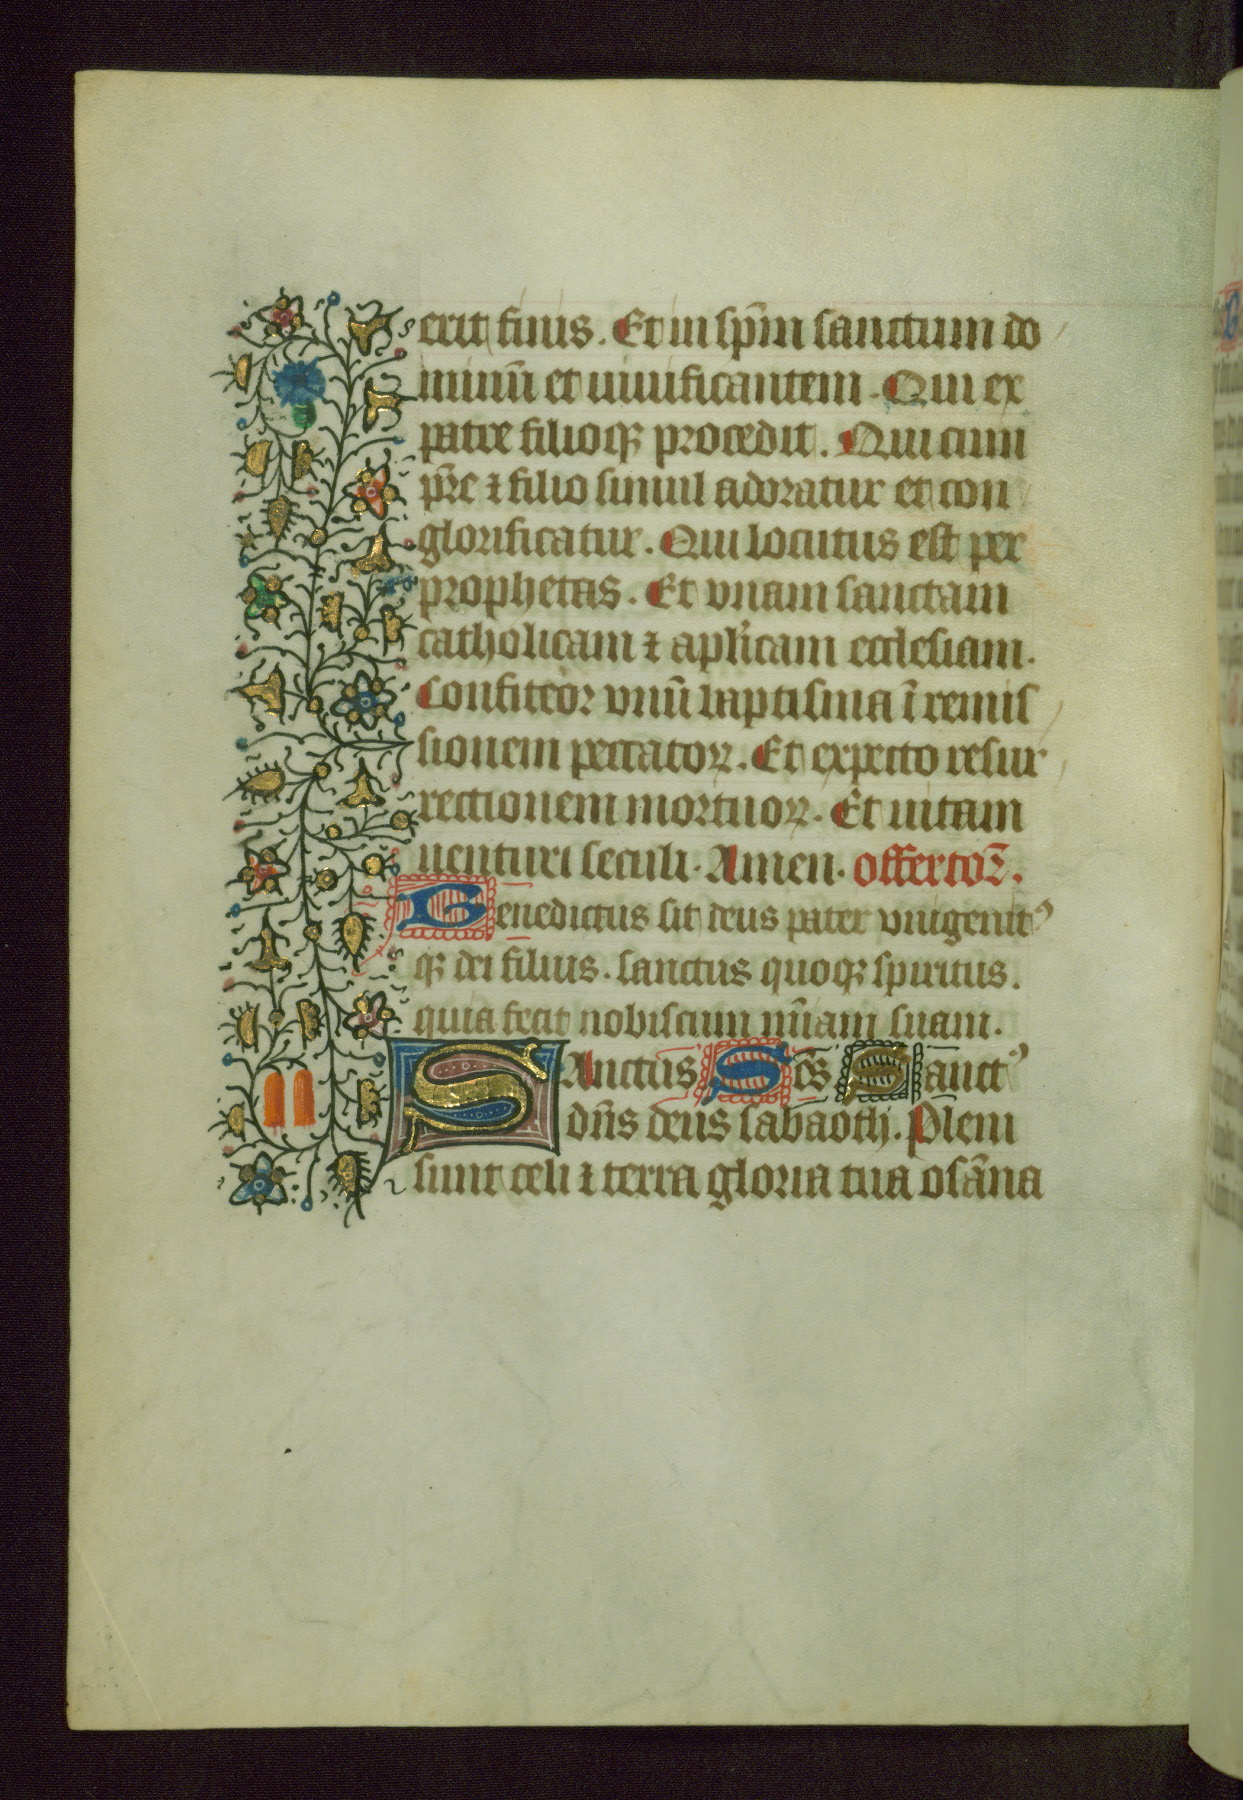 erit finis. Et in sp̄m sanctum do
minū et uiuificantem. Qui ex
patre filioqꝫ procedit. Qui cum
p̄re ⁊ filio simul adoratur et con
glorificatur. Qui locutus est per
prophetas. Et vnam sanctam
catholicam ⁊ apl'icam ecclesiam.
Confiteor vnū baptisma ī remis
sionem peccatoꝝ. Et expecto resur
rectionem mortuoꝝ. Et uitam
uenturi seculi. Amen. offertor̄.
Benedictus sit deus pater vnigenitꝰ
qꝫ dei filius. sanctus quoqꝫ spiritus.
quia fecit nobiscum mīam suam.
SAnctus Sc̄s Sanctꝰ
dn̄s deus sabaoth. Pleni
sunt celi ⁊ terra gloria tua osāna